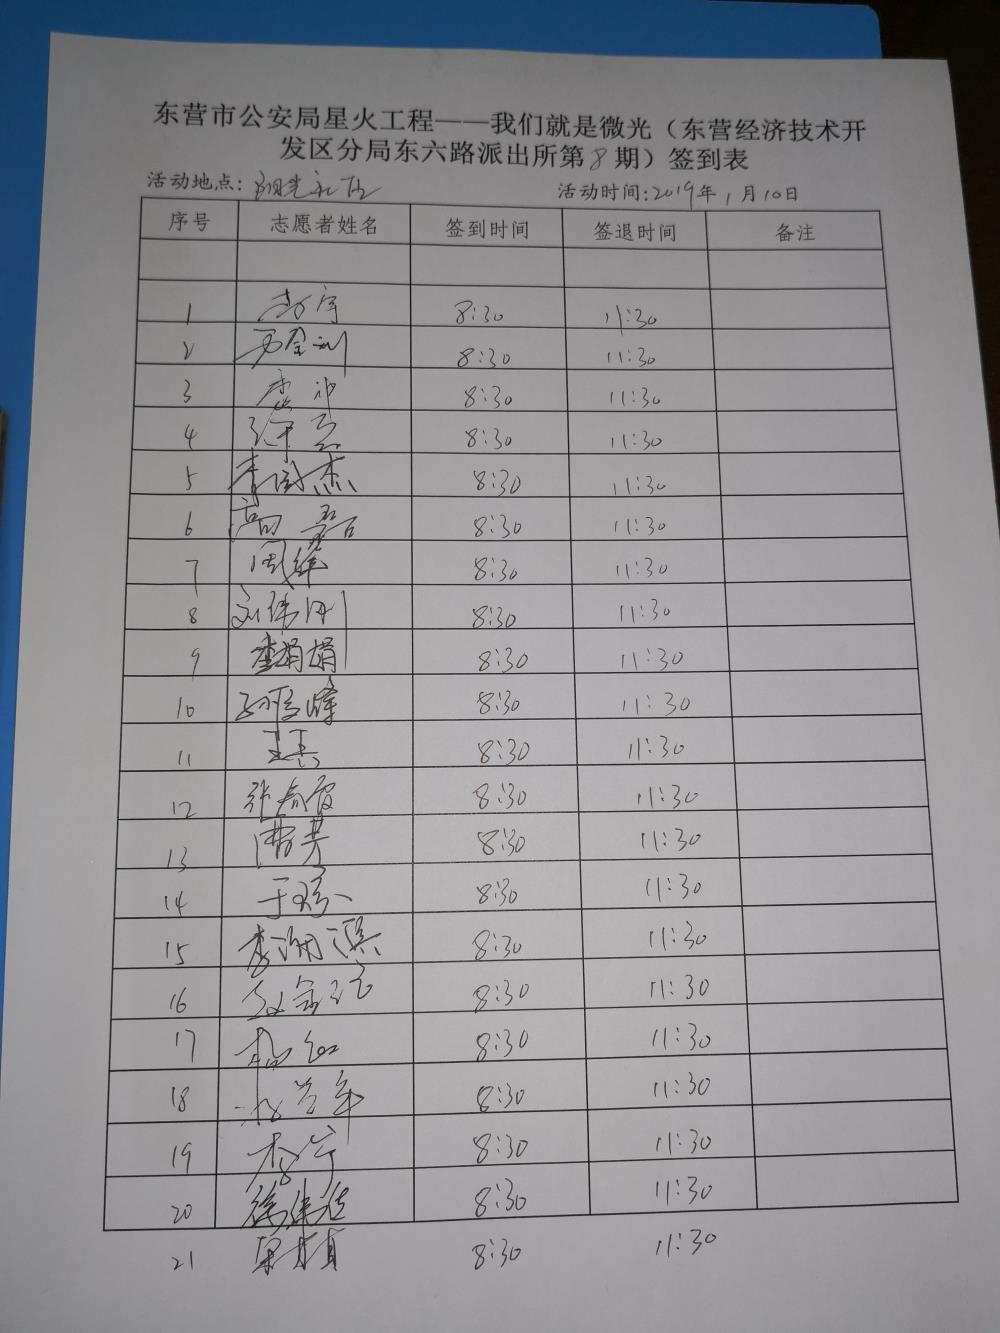 东营市公安局星火工程——我们就是微光（东营经济技术开
发区分局东六路派出所第8期）签到表
活动地点: 活动时间:2019年1月10日
序号 志愿者姓名 签到时间 签退时间 备注
1 8:30 11:30
2 8:30 11:30
3 8:30 11:30
4 8:30 11:30
5 8:30 11:30
6 高磊 8:30 11:30
7 周维 8:30 11:30
8 刘伟刚 8:30 11:30
9 李娟娟 8:30 11:30
10 8:30 11:30
11 8:30 11:30
12 张春霞 8:30 11:30
13 曹芳 8:30 11:30
14 8:30 11:30
15 8:30 11:30
16 8:30 11:30
17 8:30 11:30
18 8:30 11:30
19 李宁 8:30 11:30
20 8:30 11:30
21 8:30 11:30